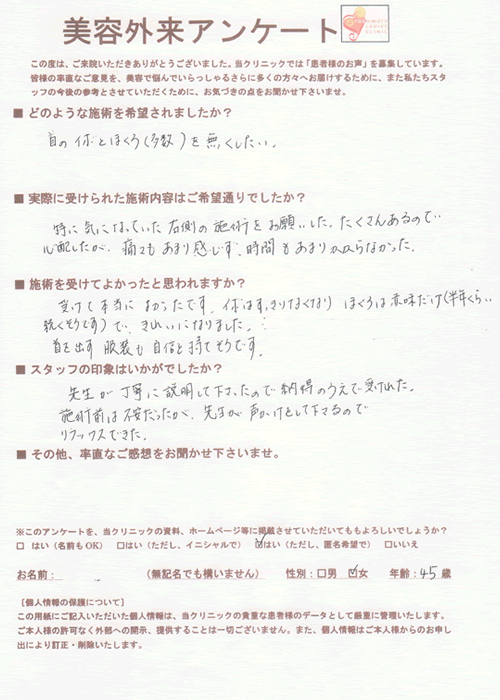 美容外来アンケート
この度は、ご来院いただきありがとうございました。当クリニックでは「患者様のお声」を募集しています。
皆様の率直なご意見を、美容で悩んでいらっしゃるさらに多くの方々へお届けするために、また私たちスタ
ッフの今後の参考とさせていただくために、お気づきの点をお聞かせ下さいませ。
■ どのような施術を希望されましたか？
首の イボとほくろ（多数）を無くしたい。
■ 実際に受けられた施術内容はご希望通りでしたか？
特に気になっていた右側の施術をお願いした。たくさんあるので
心配したが、痛さもあまり感じず、時間もあまりかからなかった。
■ 施術を受けてよかったと思われますか？
受けて本当に よかったです。イボはすっきりなくなり ほくろは赤味だけ（半年くらい
続くそうです）で、きれいになりました。
首を出す 服装も自信を持てそうです。
■ スタッフの印象はいかがでしたか？
先生が丁寧に説明して下さったので納得のうえで受けれた。
施術前は不安だったが、先生が声かけをして下さるので
リラックスできた。
■ その他、率直なご感想をお聞かせ下さいませ。
※このアンケートを、当クリニックの資料、ホームページ等に掲載させていただいてもよろしいでしょうか？
□ はい（名前もOK） □はい（ただし、イニシャルで） ☑はい（ただし、匿名希望で） □いいえ
お名前： （無記名でも構いません） 性別：□男 ☑女 年齢：45歳
［個人情報の保護について］
この用紙にご記入いただいた個人情報は、当クリニックの貴重な患者様のデータとして厳重に管理いたします。
ご本人様の許可なく外部への開示、提供することは一切ございません。また、個人情報はご本人様からのお申し
出により訂正・削除いたします。